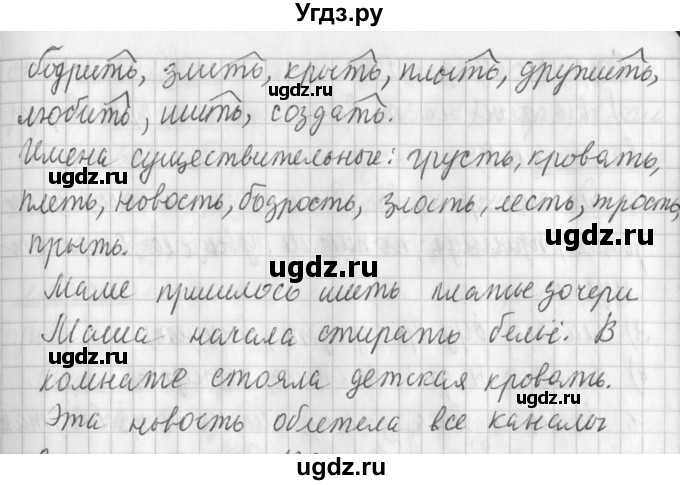 Угдз.ру
бодрить, злить, крыть, плыть, дружить,
любить, шить, создать.
Имена существительные: грусть, кровать,
плеть, новость, бодрость, злость, лесть, трость,
прыть.
Маме пришлось шить платье дочери
Маша начала стирать бельё. В
комнате стояла детская кровать.
Эта новость облетела все каналы
ugdz.ru
ugdz.ru
ugdz.ru
ugdz.ru
ugdz.ru
ugdz.ru
ugdz.ru
ugdz.ru